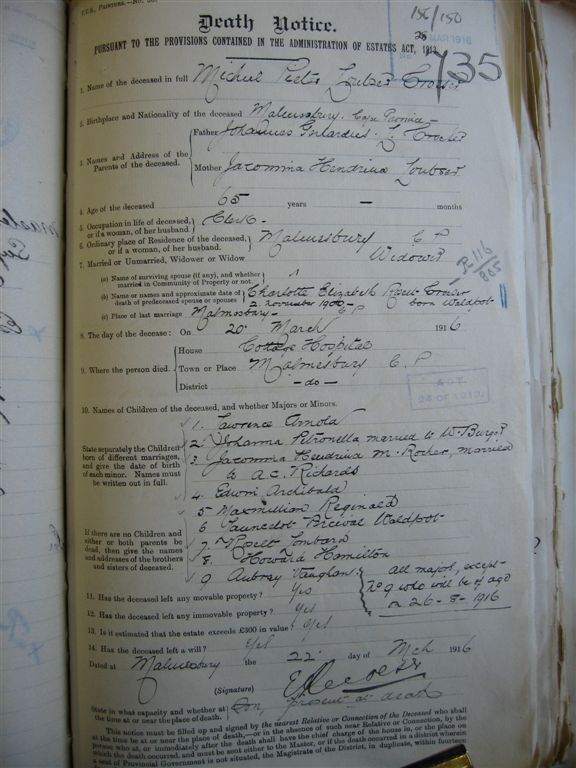 186/180
MAR 1916
735
Death Notice.
PURSUANT TO THE PROVISIONS CONTAINED IN THE ADMINISTRATION OF ESTATES ACT, 1913
1. Name of the deceased in full Michiel Pieter Loubser Crocker
2. Birthplace and Nationality of the deceased Malmesbury. Cape Province
3. Names and Address of the Parents of the deceased.
Father
Mother Jacomina Hendrina Loubser
4. Age of the deceased 65 years — months
5. Occupation in life of deceased, or if a woman, of her husband. Clerk
6. Ordinary place of Residence of the deceased, or if a woman, of her husband. Malmesbury C P
7. Married or Unmarried, Widower or Widow Widower
R 116
805
(a) Name of surviving spouse (if any), and whether married in Community of Property or not
(b) Name or names and approximate date of death of predeceased spouse or spouses Charlotte Elizabeth
2. November 1900 born Waldpot
(c) Place of last marriage Malmesbury C P
8. The day of the decease: On 20 March 1916
9. Where the person died.
House Cottage Hospital
Town or Place Malmesbury C. P
District — do —
ACT.
24 OF 1913.
10. Names of Children of the deceased, and whether Majors or Minors.
State separately the Children born of different marriages, and give the date of birth of each minor. Names must be written out in full.
If there are no Children and either or both parents be dead, then give the names and addresses of the brothers and sisters of deceased.
1. Lawrence Arnold
2 Johanna Petronella married to W. Burger
3 Jacomina Hendrina M. Rocher, married
to A.C. Richards
4. Edwin Archibald
5 Maxmillian Reginald
6 Percival Waldpot
7. Lombard
8. Howard Hamilton
9 Aubrey Vaughan
all major, except
No 9 who will be of age
on 26-8-1916
11. Has the deceased left any movable property? Yes
12. Has the deceased left any immovable property? Yes
13. Is it estimated that the estate exceeds £300 in value? Yes
14. Has the deceased left a will? Yes
Dated at Malmesbury the 22 day of Mch 1916
(Signature)
State in what capacity and whether at the time at or near the place of death. Son, present at death
This notice must be filled up and signed by the nearest Relative or Connection of the Deceased who shall
be at the time at or near the place of death,—or in the absence of such near Relative or Connection, by the
person who, at or immediately after the death shall have the chief charge of the house in, or the place on
which the death occurred, and must be sent either to the Master, or if the death occurred in a district wherein
a seat of Provincial Government is not situated, the Magistrate of the District, in duplicate, within fourteen